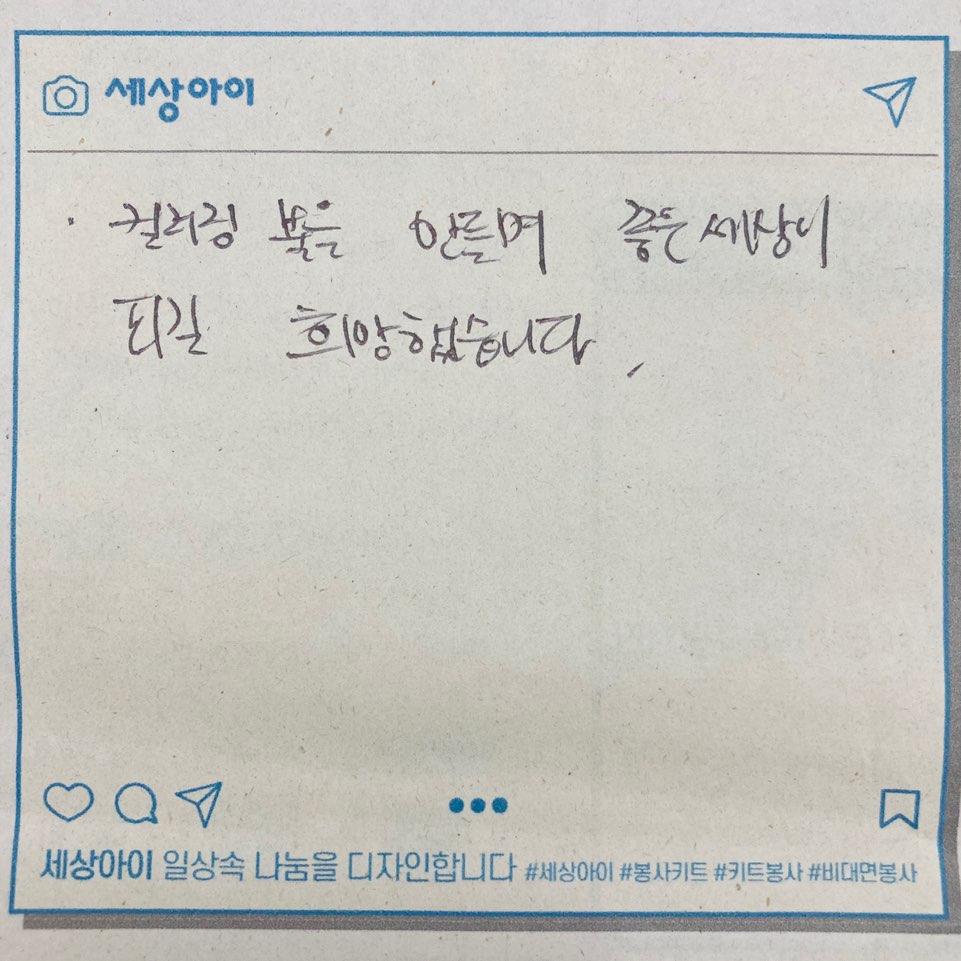 세상아이
· 컬러링 북을 만들며 좋은 세상이
되길 희망했습니다.
세상아이 일상속 나눔을 디자인합니다 #세상아이 #봉사키트 #키트봉사 #비대면봉사